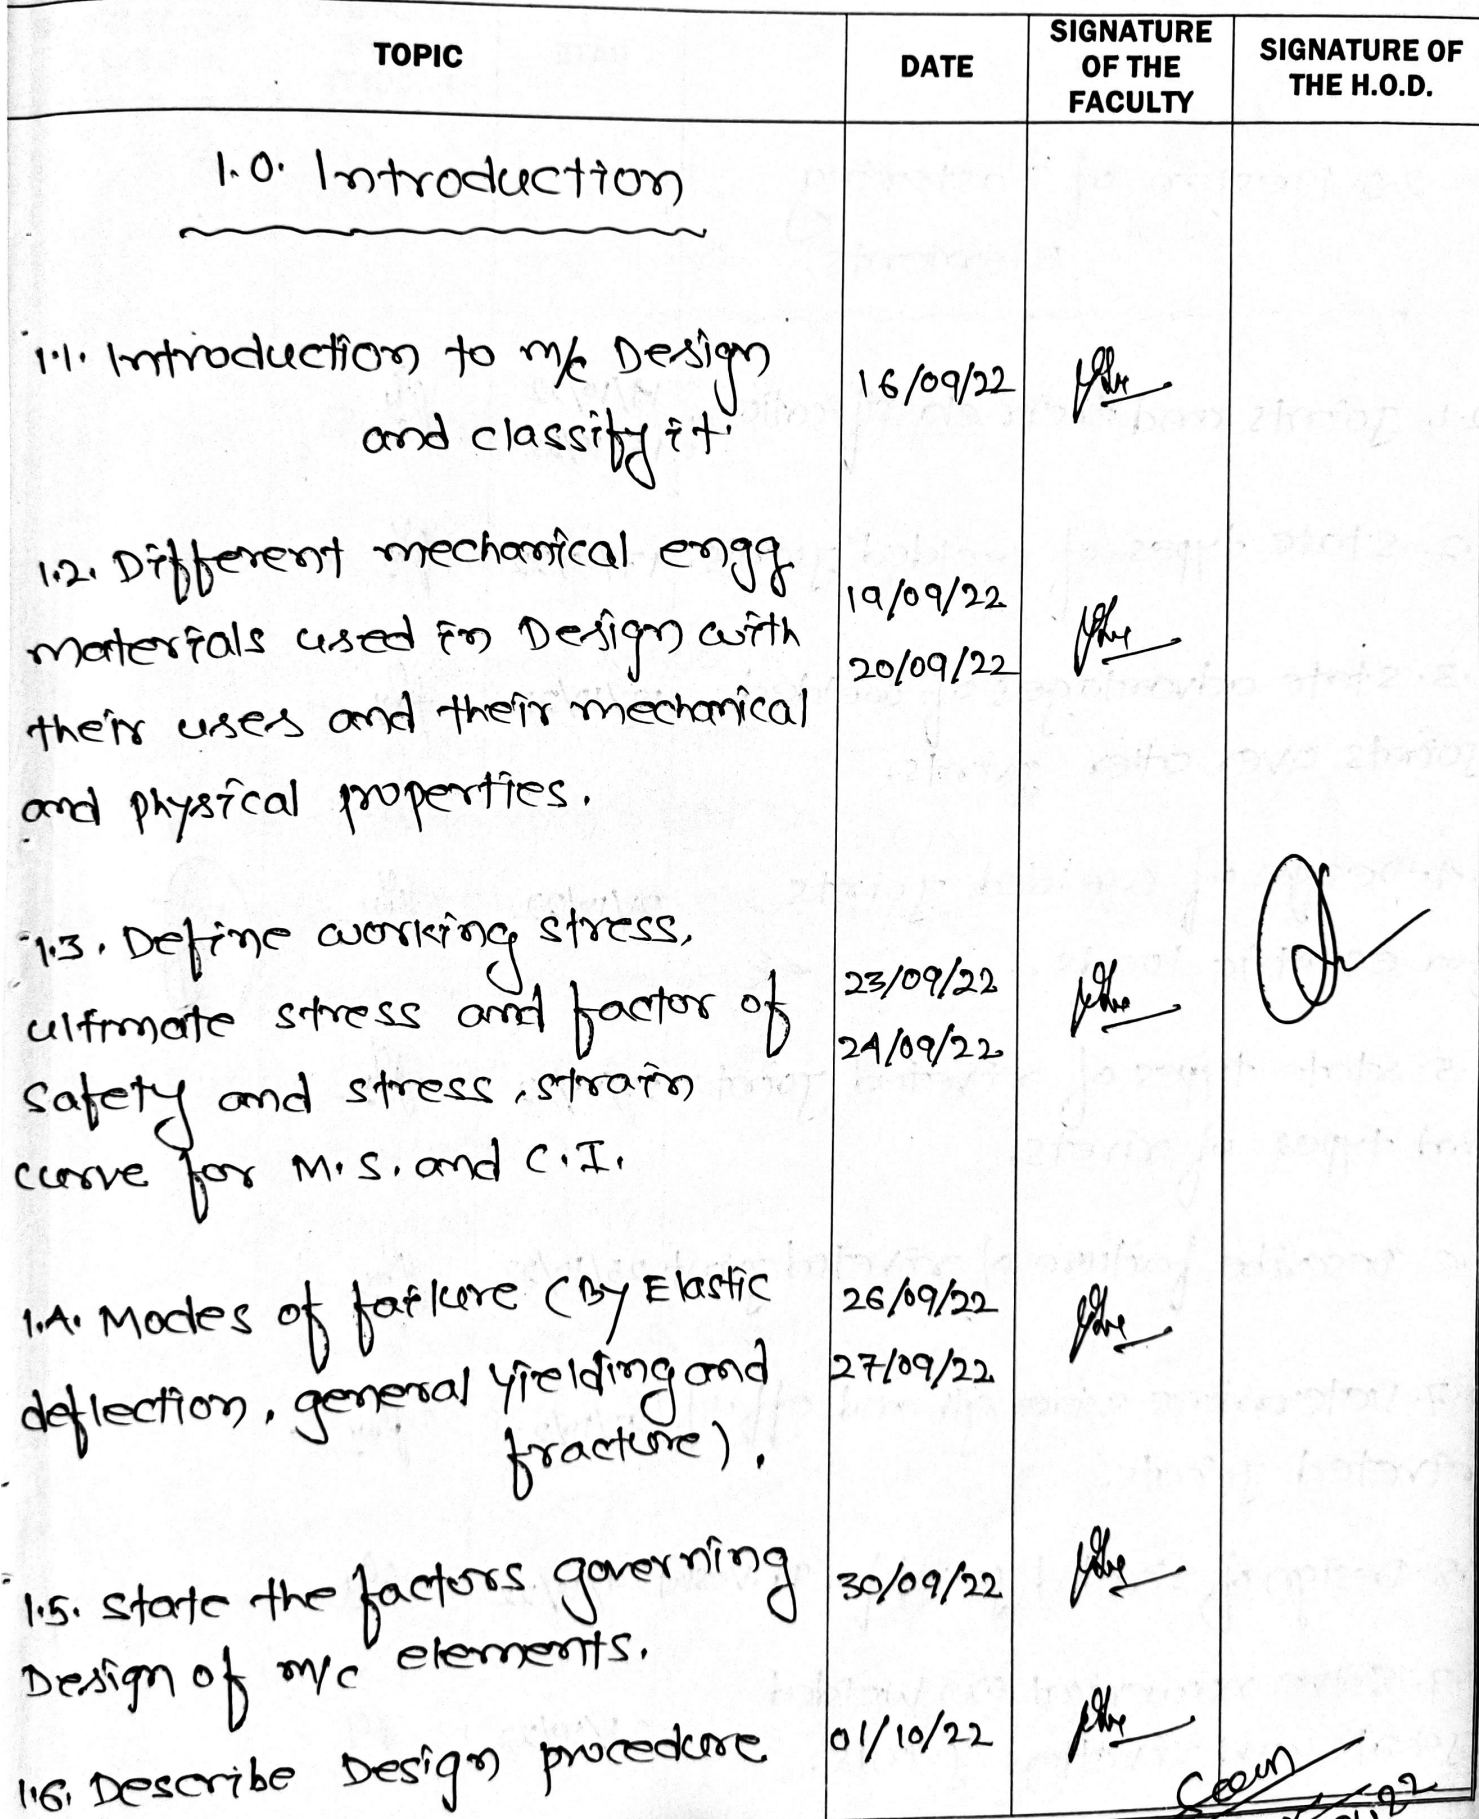 TOPIC
DATE
SIGNATURE
OF THE
FACULTY
SIGNATURE OF
THE H.O.D.
1.0. Introduction
1.1. Introduction to m/c Design
and classify it.
16/09/22
1.2. Different mechanical engg
materials used in Design with
their uses and their mechanical
and physical properties.
19/09/22
20/09/22
1.3. Define working stress,
ultimate stress and factor of
safety and stress, strain
curve for M.S. and C.I.
23/09/22
24/09/22
1.4. Modes of failure (By Elastic
deflection, general yielding and
fracture).
26/09/22
27/09/22
1.5. State the factors governing
Design of m/c elements.
30/09/22
1.6. Describe Design procedure
01/10/22
Seen